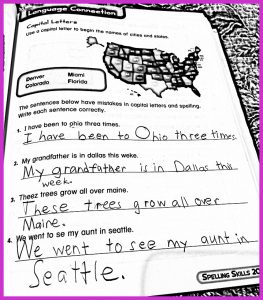 Language Connection
Capital Letters
Use a capital letter to begin the names of cities and states.
Denver Miami
Colorado Florida
The sentences below have mistakes in capital letters and spelling.
Write each sentence correctly.
1. I have been to ohio three times.
I have been to Ohio three times.
2. My grandfather is in dallas this weke.
My grandfather is in Dallas this
week.
3. Theez trees grow all over maine.
These trees grow all over
Maine.
4. We went to se my aunt in seattle.
We went to see my aunt in
Seattle.
Spelling Skills 20